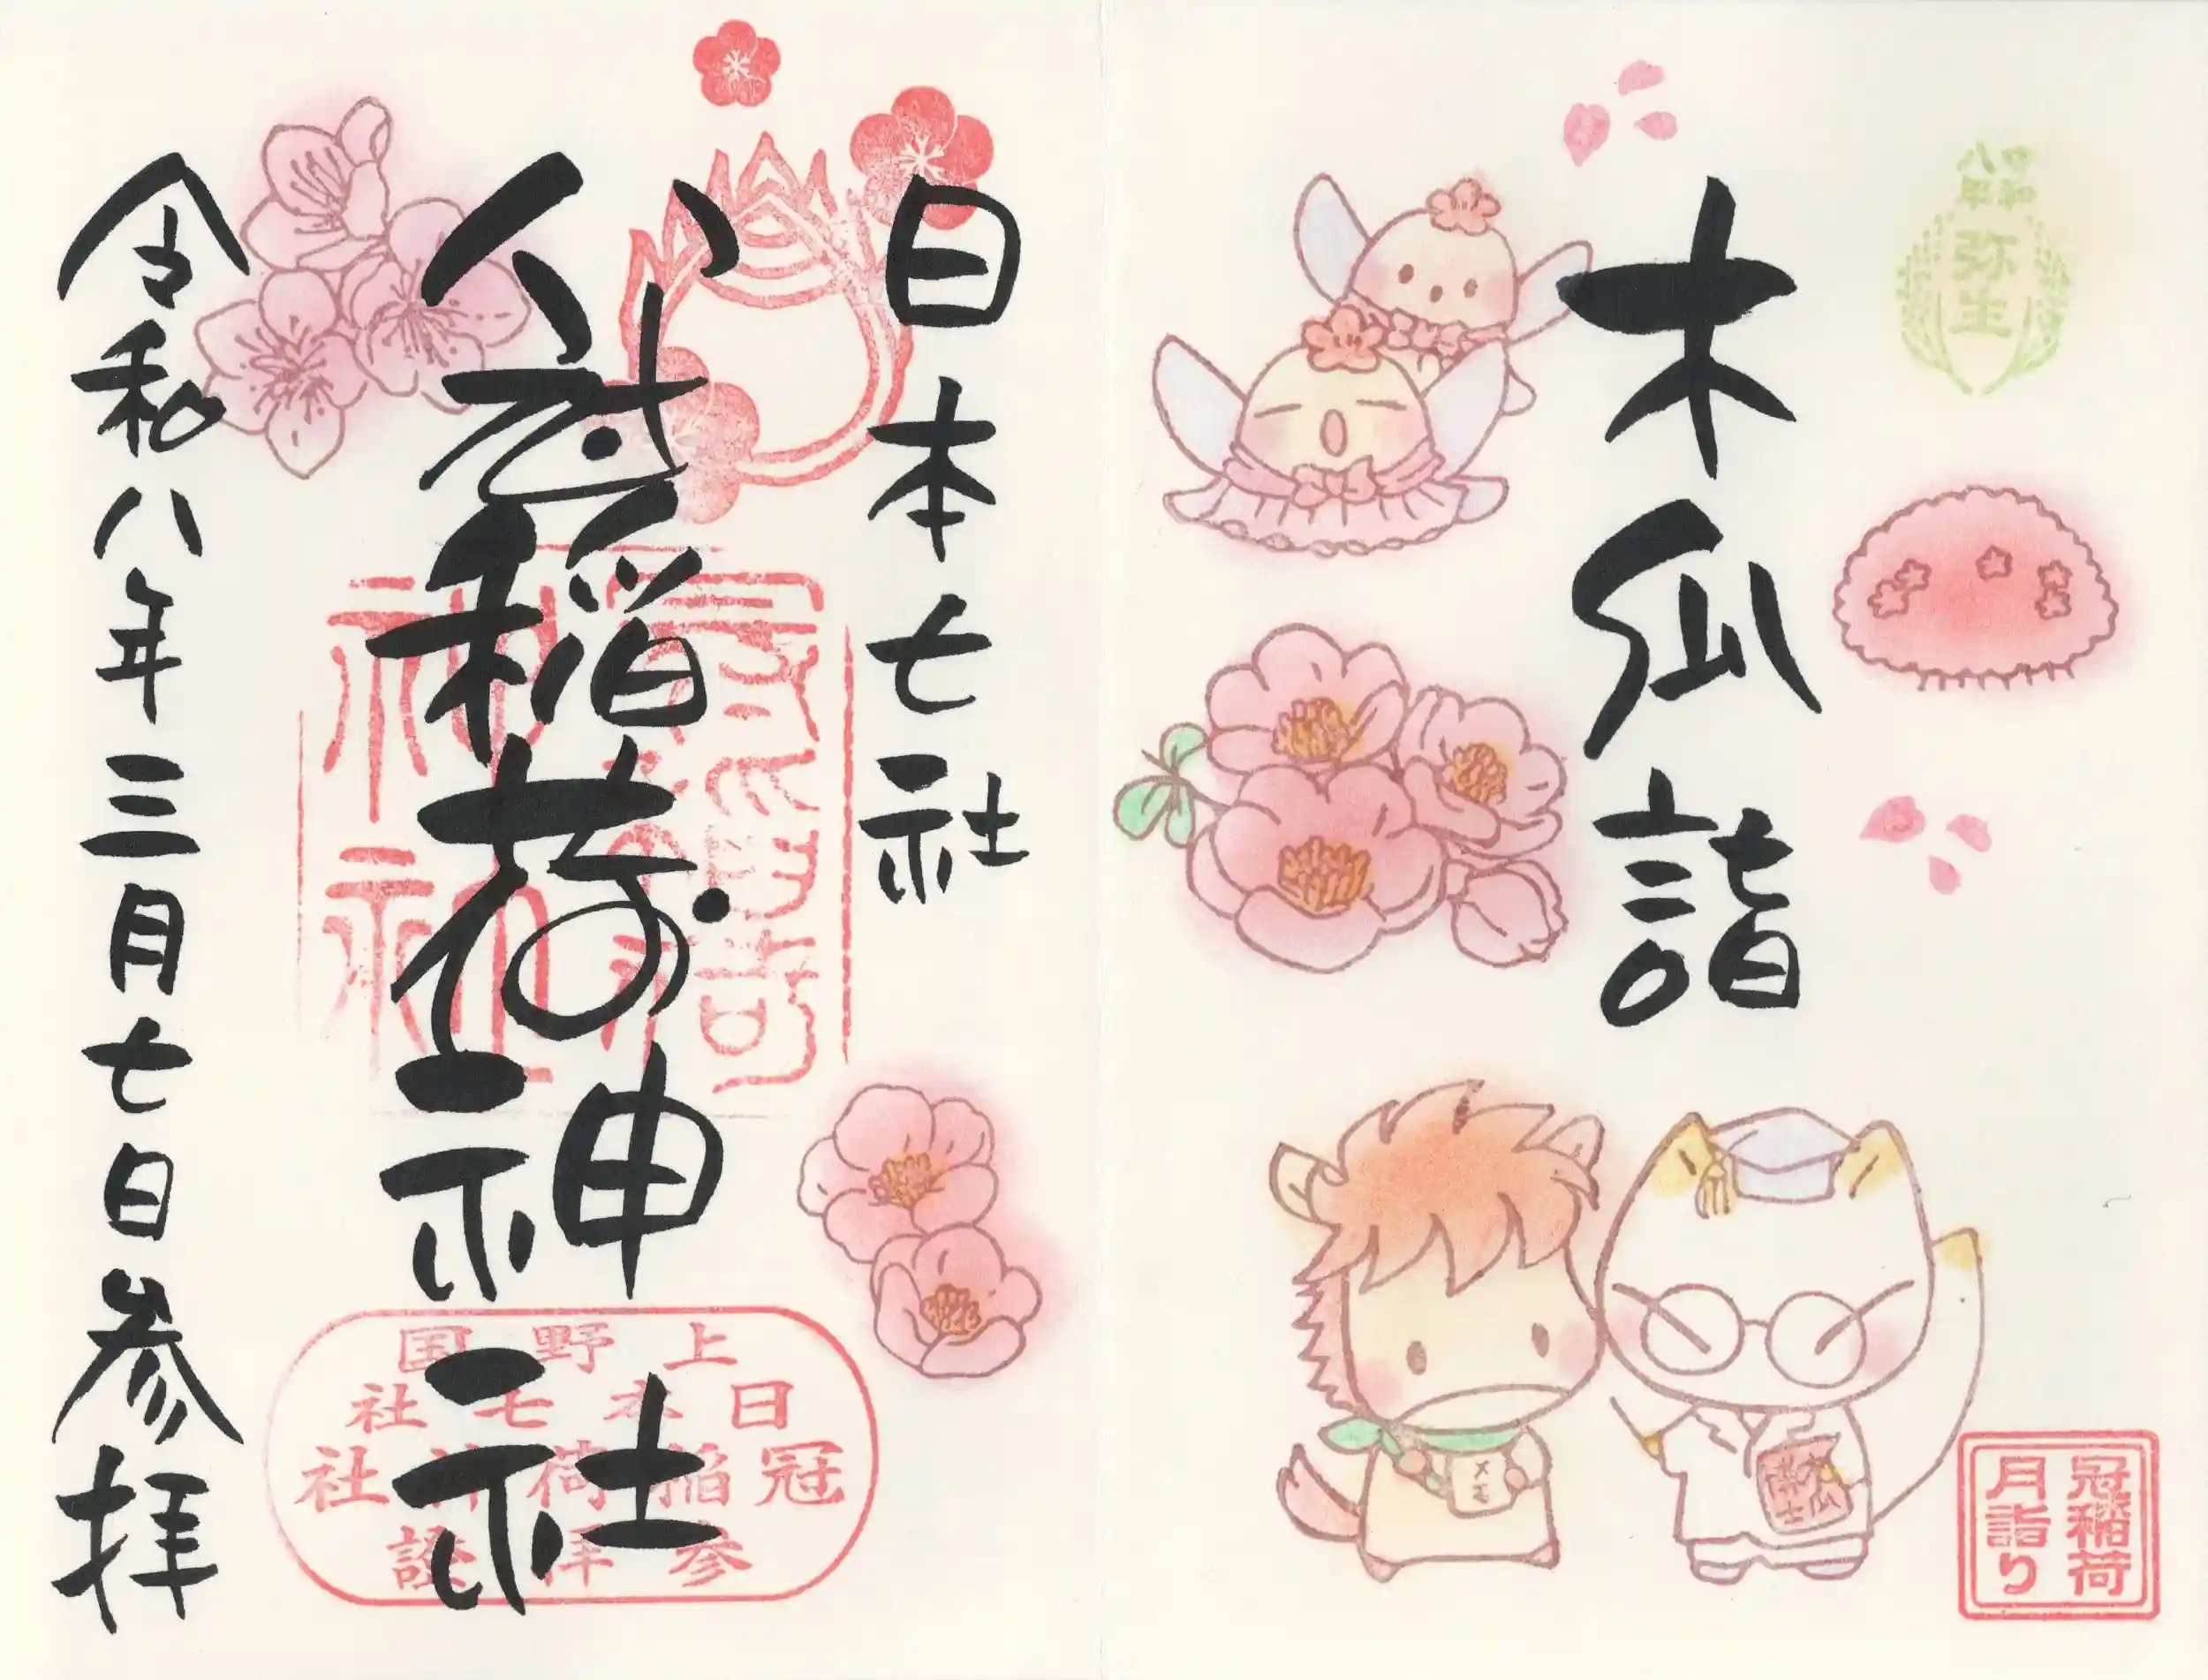 令和
八年
弥生
木瓜詣
メモ
木瓜
博士
冠稲荷
月詣り
日本七社
冠稲荷神社
上野国
日本七社
冠稲荷神社
参拝證
令和八年三月七日参拝